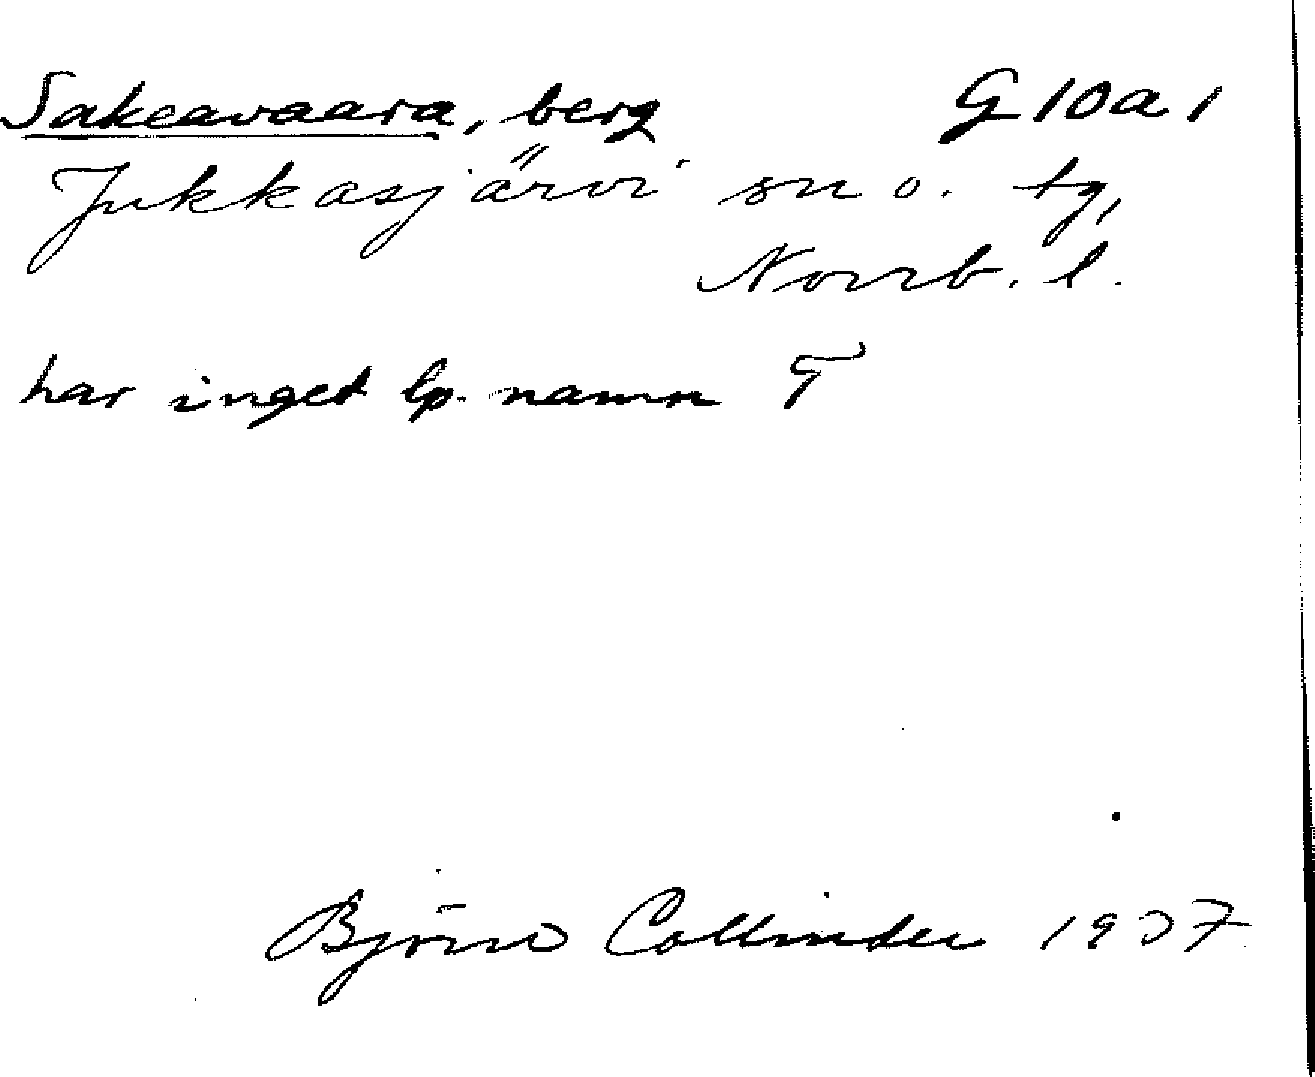 Sakeavaara, berg G 10 a 1
Jukkasjärvi sn o. tg,
Norrb. l.
har inget lp. namn T
Björn Collinder 1937